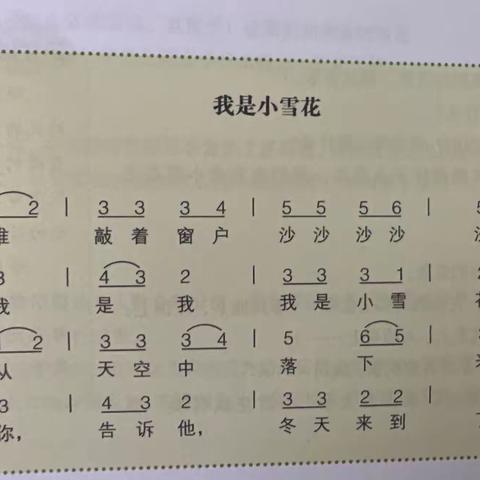 我是小雪花
2 | 3 3 3 4 | 5 5 5 6 |
敲着窗户 沙沙沙沙
3 | 4 3 2 | 3 3 3 1 |
我 是 我 我是小雪
2 | 3 3 3 4 | 5 6 5 |
从 天空中 落下
3 | 4 3 3 | 3 3 2 2 |
你, 告诉他, 冬天来到